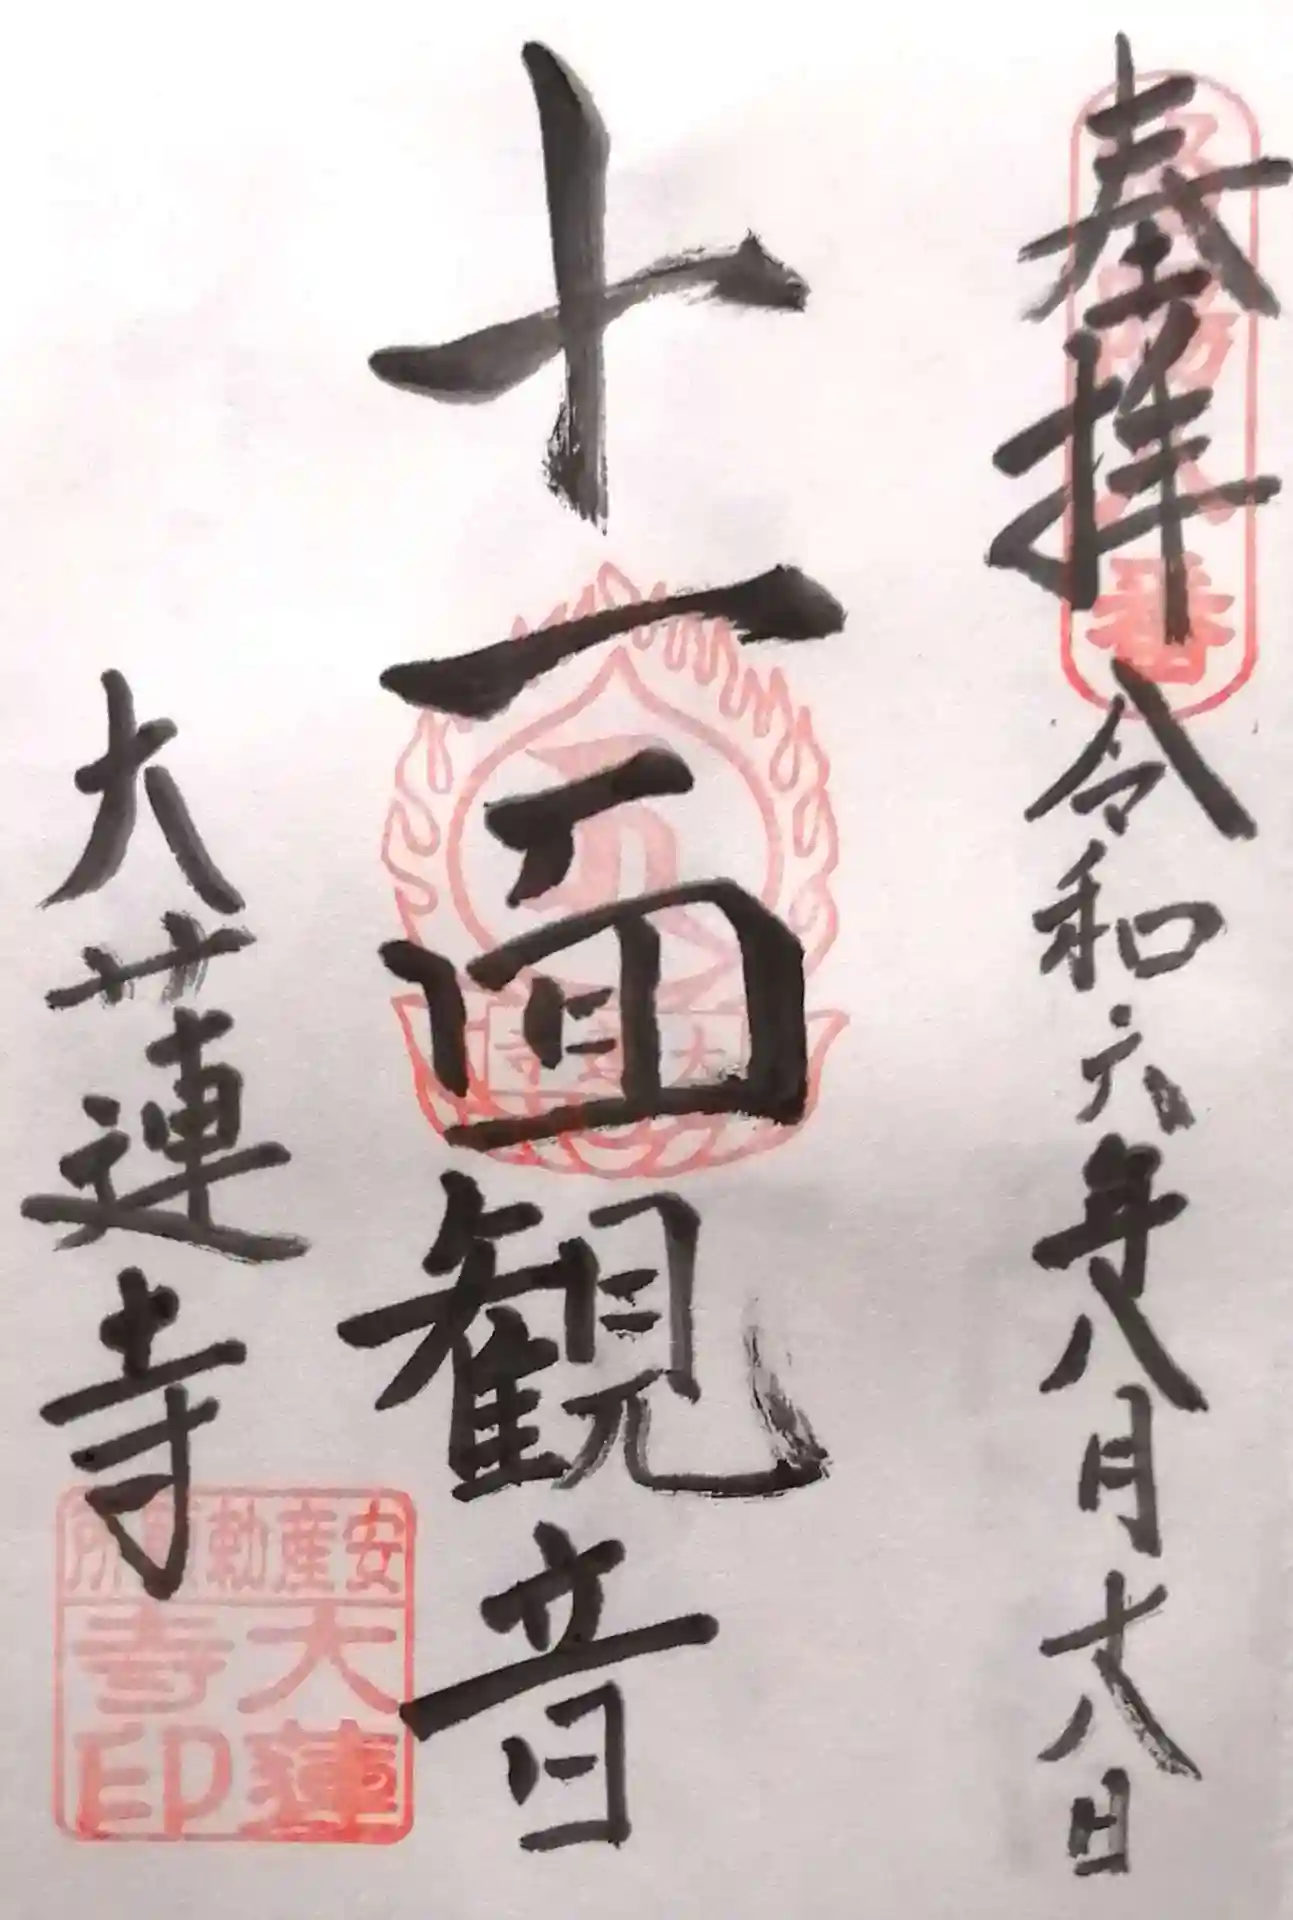 奉拝 令和六年八月十八日
十一面観音
大蓮寺
安産勅願所
大蓮寺印